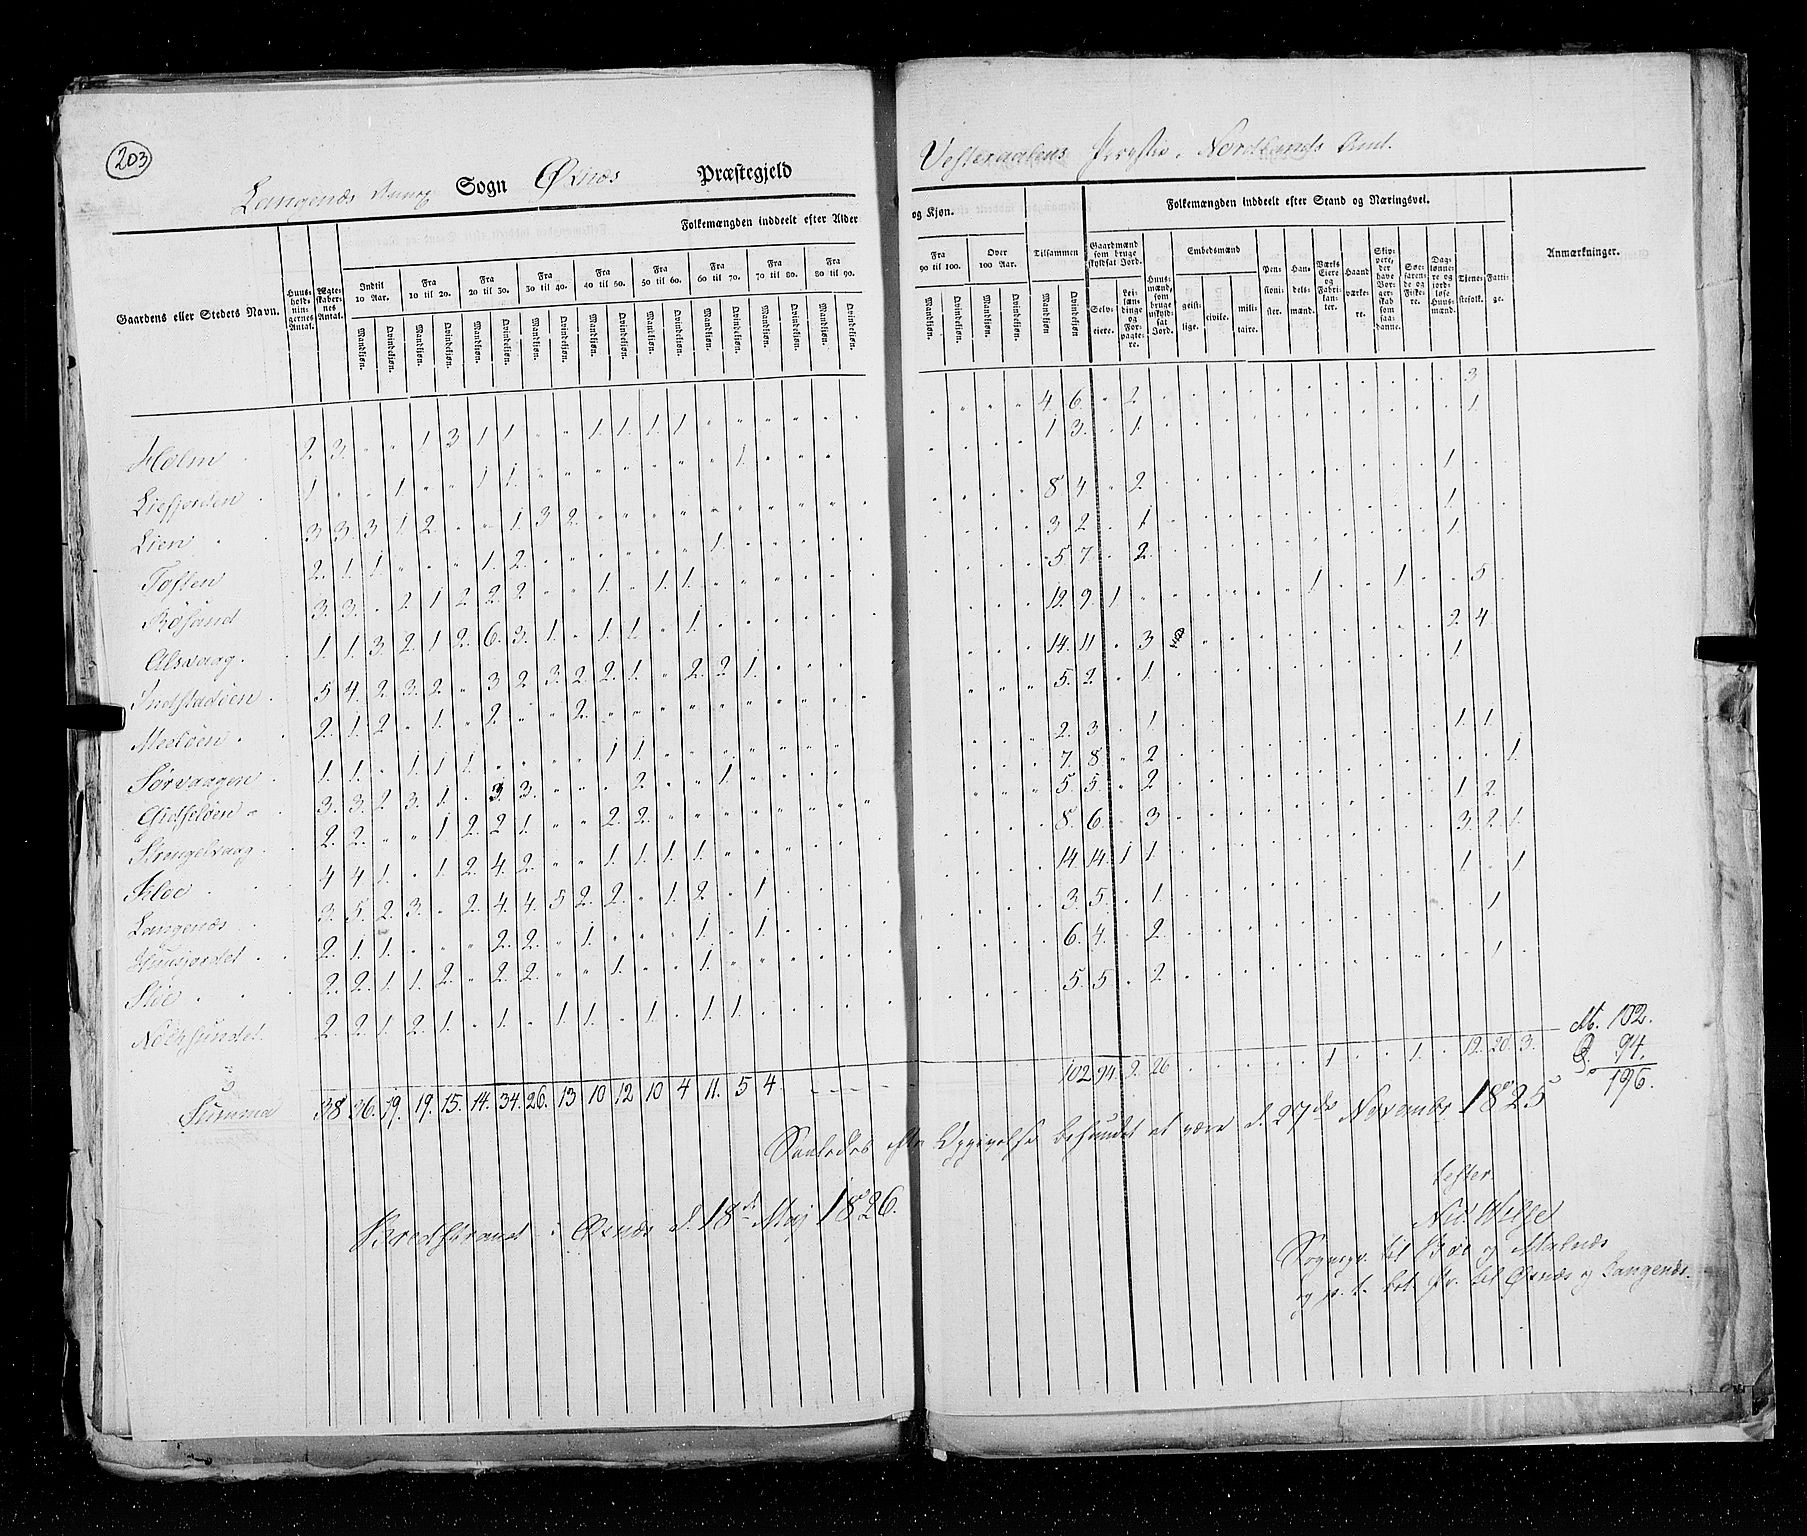 203
Langenæs Sogn Øxnæs Præstegjeld
Vesteraalens Provstie, Nordlands Amt.
Folkemængden inddeelt efter Alder
og Kjøn.
Folkemængden inddeelt efter Stand og Næringsvei.
Gaardens eller Stedets Navn.
Huus-holdnin-gernes Antal.
Ægte-skaber-nes Antal.
Indtil 10 Aar.
Fra 10 til 20.
Fra 20 til 30.
Fra 30 til 40.
Fra 40 til 50.
Fra 50 til 60.
Fra 60 til 70.
Fra 70 til 80.
Fra 80 til 90.
Fra 90 til 100.
Over 100 Aar.
Tilsammen
Mandkjøn. Qvindekjøn.
Gaardmænd som bruge skyldsat Jord.
Selv-eiere.
Lei-lændinge og For-pagte-re.
Huus-mænd, som bruge uskyld-sat Jord.
Embedsmænd
geist-lige.
civile.
mili-taire.
Pen-sioni-ster.
Han-dels-mænd.
Værks Eiere og Fabri-kan-ter.
Haand-værke-re.
Skip-pere, der have Bor-ger-skab som saa-danne.
Søe-faren-de og Fiske-re.
Dag-lønne-re og jord-løse Huus-mænd.
Tjene-stefolk.
Fatti-ge.
Anmærkninger.
Holm 2. 3. " " 1. 3 1 1 " " 1. 1. 1. 1 4. 6. " 2. 3
Liefjorden 1. " " 1. " " 1 1. 1. 1 3. " 1. 1
Lien 3. 3. 3 1 2. " " 1 3 2. 8 4 " 2. 1
Toften 2. 1. 1. " " " 1. 2. 1. 3 2. " 1 1
Røsand 3. 3. " 2 1 2 2. 2 " " 1. " 1 1. 5. 7 " 2. 1
Alsvaag 1. 1. 3. 2. 1 2. 6. 3. 1. " 1. 1. " 1. 12. 9. 1 1 1 5
Indstadøen 5 4. 2 3. 2. " 3 2 3. 2. 2. 1. " 2. 2 1. 14. 11 " 3 2. 4
Meeløen 2. 1. 2 " 1. " 2. " " 2. 5. 2. " 1. 1.
Sørvaagen 1. 1. " 1. 1. 1. 1 1. 2. 3. " 1. 1. 1.
Gidsløen 3. 3. 2 3. 1. " 3 3. 2 1 7. 8. " 2. 1.
Stengelvaag 2. 2. " " 1 2. 2 1. " " 2. 2. 5 5. " 2. 1 2.
Kloe 4 4 1. " 1. 2. 4. 2. " " 1. 1. 1. 1. 8. 6. " 3. 3. 2. 1.
Langenæs 3. 5. 2 3. " 2. 4. 4. 5 2. 2. " 1. 2. " 1. 14. 14. 1 1. 1 " 1
2. 1. 1. 2. 2. " 1. 1. " 1. 3. 5. " 1. 1
Støe 2. 2. 1 1. 2. " 2. 2. " " 1. 1. 6. 4. " 2. 1
2. 2. 1. 2. 1. " 1. " 1. 1. " 1. " 1. 1. 5. 5 " 2
Summa 38 36. 19. 19. 15. 14. 34. 26. 13 10 12 10 4 11. 5 4. 102 94. 2. 26 1 1. 12. 20. 3.
M. 102.
Q. 94.
196.
Saaledes efter Opgivelse befundet at være d. 27de Novembr 1825
tester
Bredstrand i Øxnæs d. 18de Maj 1826.
Sognepr. til Bøe og Malnæs
og p. t. til Øxnæs og Langenæs.